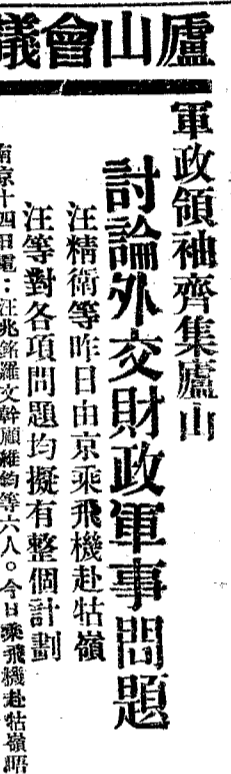 廬山會議
軍政領袖齊集廬山
討論外交財政軍事問題
汪精衛等昨日由京乘飛機赴牯嶺
汪等對各項問題均擬有整個計劃
南京十四日電：汪兆銘羅文幹顧維鈞等六人。今日乘飛機赴牯嶺晤